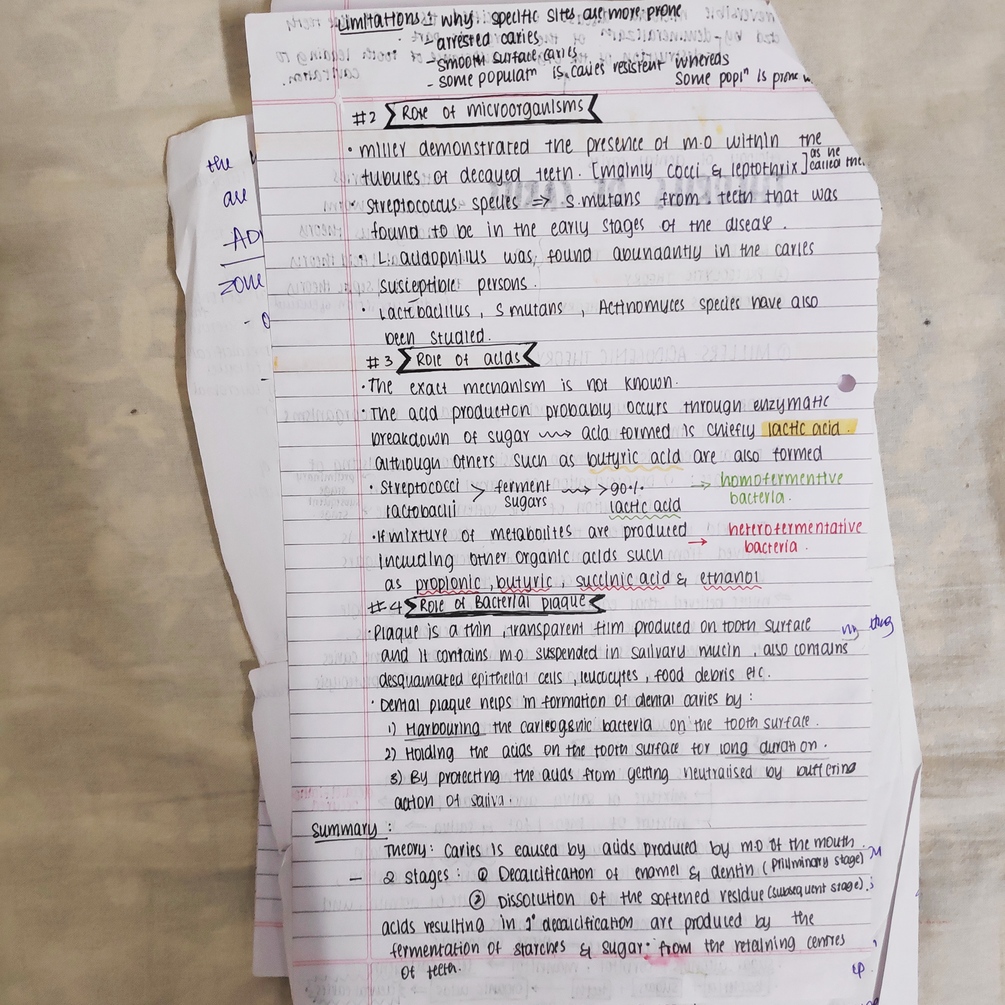 Limitations : why specific sites are more prone
- arrested caries
- smooth surface caries
- some populatn is caries resistent whereas
some popln is prone
#2 Role of microorganisms
• Miller demonstrated the presence of m.o within the
tubules of decayed teeth. [mainly cocci & leptothrix] as he called the
• Streptococcus species => S.mutans from teeth that was
found to be in the early stages of the disease.
• L. acidophillus was found abundantly in the caries
susieptible persons.
• Lactobacillus, S mutans, Actinomyces species have also
been studied.
#3 Role of acids
• The exact mechanism is not known.
• The acid production probably occurs through enzymatic
breakdown of sugar ~~> acid formed is chiefly lactic acid.
although others such as butyric acid are also formed
• Streptococci > ferment ~~> >90% → homofermentive
lactobacilli sugars lactic acid bacteria.
• If mixture of metabolites are produced → heterofermentative
including other organic acids such bacteria.
as propionic, butyric, succinic acid & ethanol
#4 Role of Bacterial plaque
• Plaque is a thin, transparent film produced on tooth surface
and it contains m.o suspended in salivary mucin, also contains
desquamated epithelial cells, leucocytes, food debris etc.
• Dental plaque helps in formation of dental caries by:
1) Harbouring the carieogenic bacteria on the tooth surface.
2) Holding the acids on the tooth surface for long duration.
3) By protecting the acids from getting neutralised by buffering
action of saliva.
Summary:
Theory: Caries is caused by acids produced by m.o of the mouth.
- 2 stages: ① Decalcification of enamel & dentin (Priliminary stage)
② Dissolution of the softened residue (subsequent stage).
acids resulting in 1° decalcification are produced by the
fermentation of starches & sugar from the retaining centres
of teeth.
the
are
zone